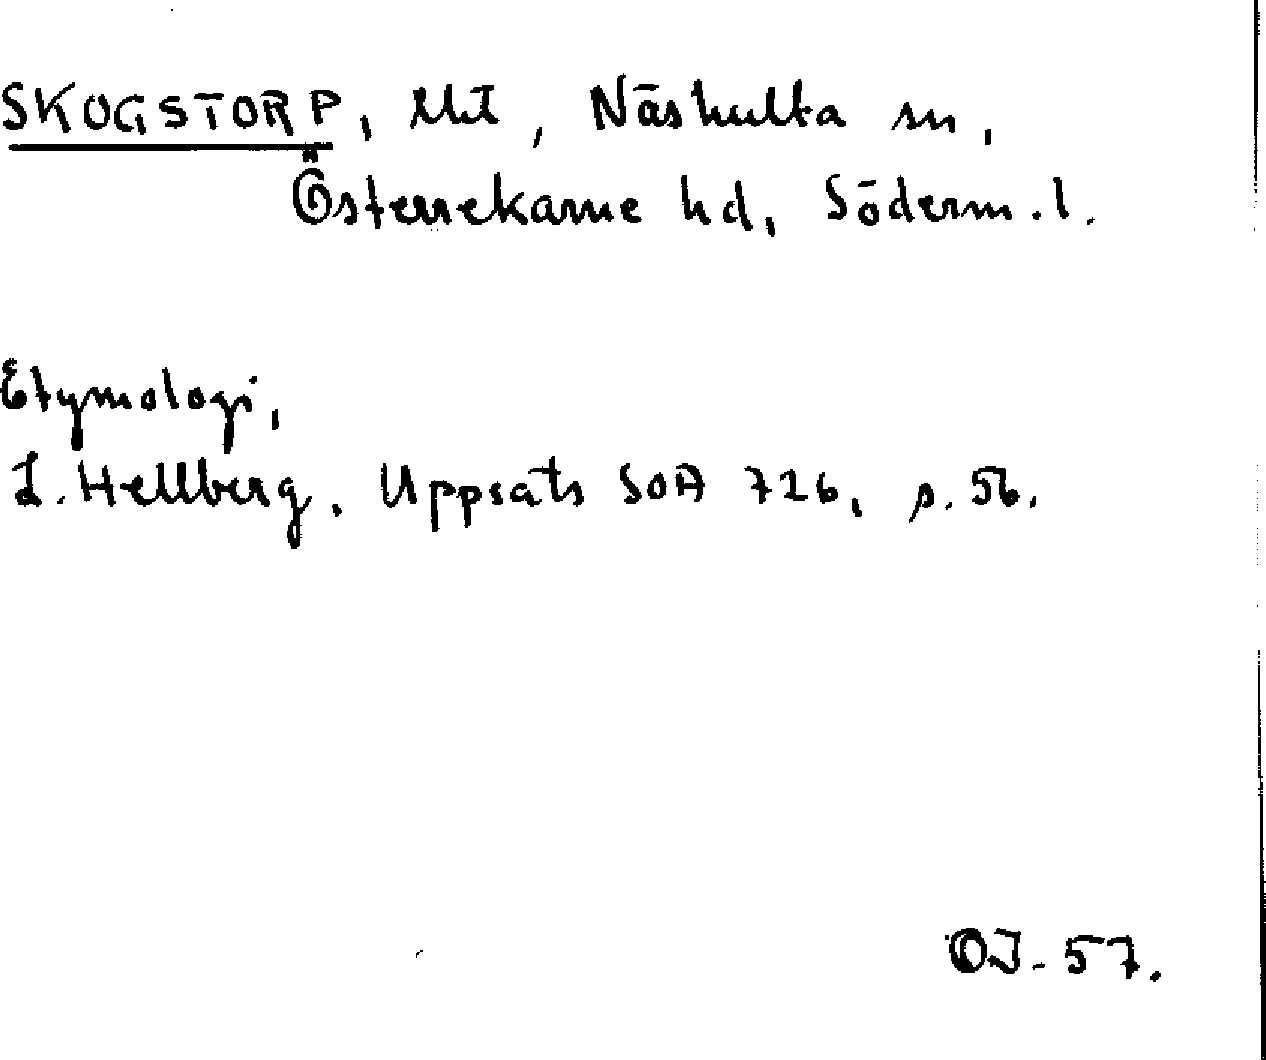 SKOGSTORP, Näshulta sn,
Österrekarne hd, Söderm.l.
Etymologi,
L. Hellberg. Uppsats SOA 726, s. 56.
OJ-57.